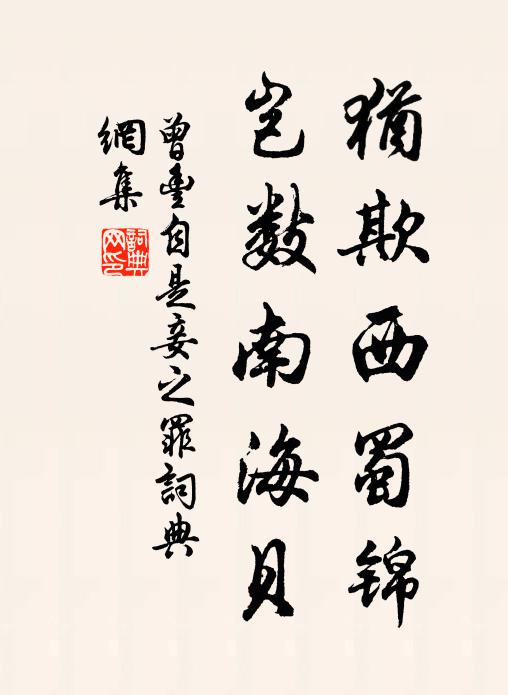 猶欺西蜀錦
豈數南海貝
曾豐自是妾之罪詞典
網集
詞典
网印